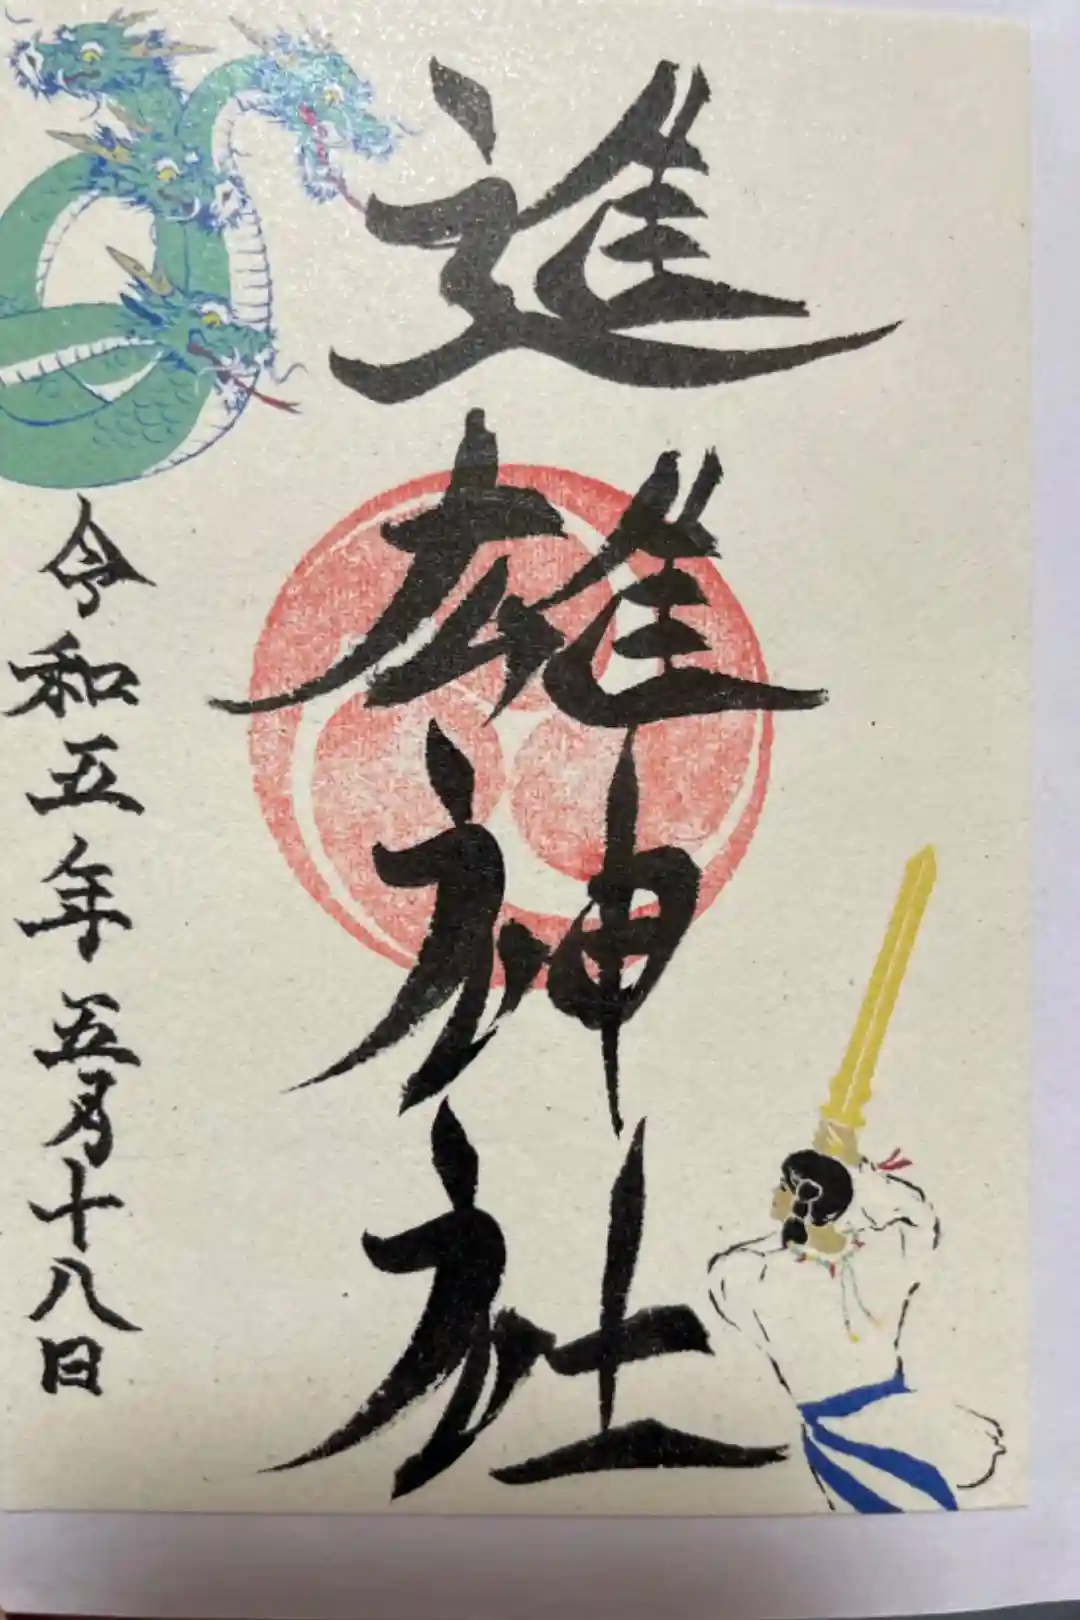 進雄神社
令和五年五月十八日